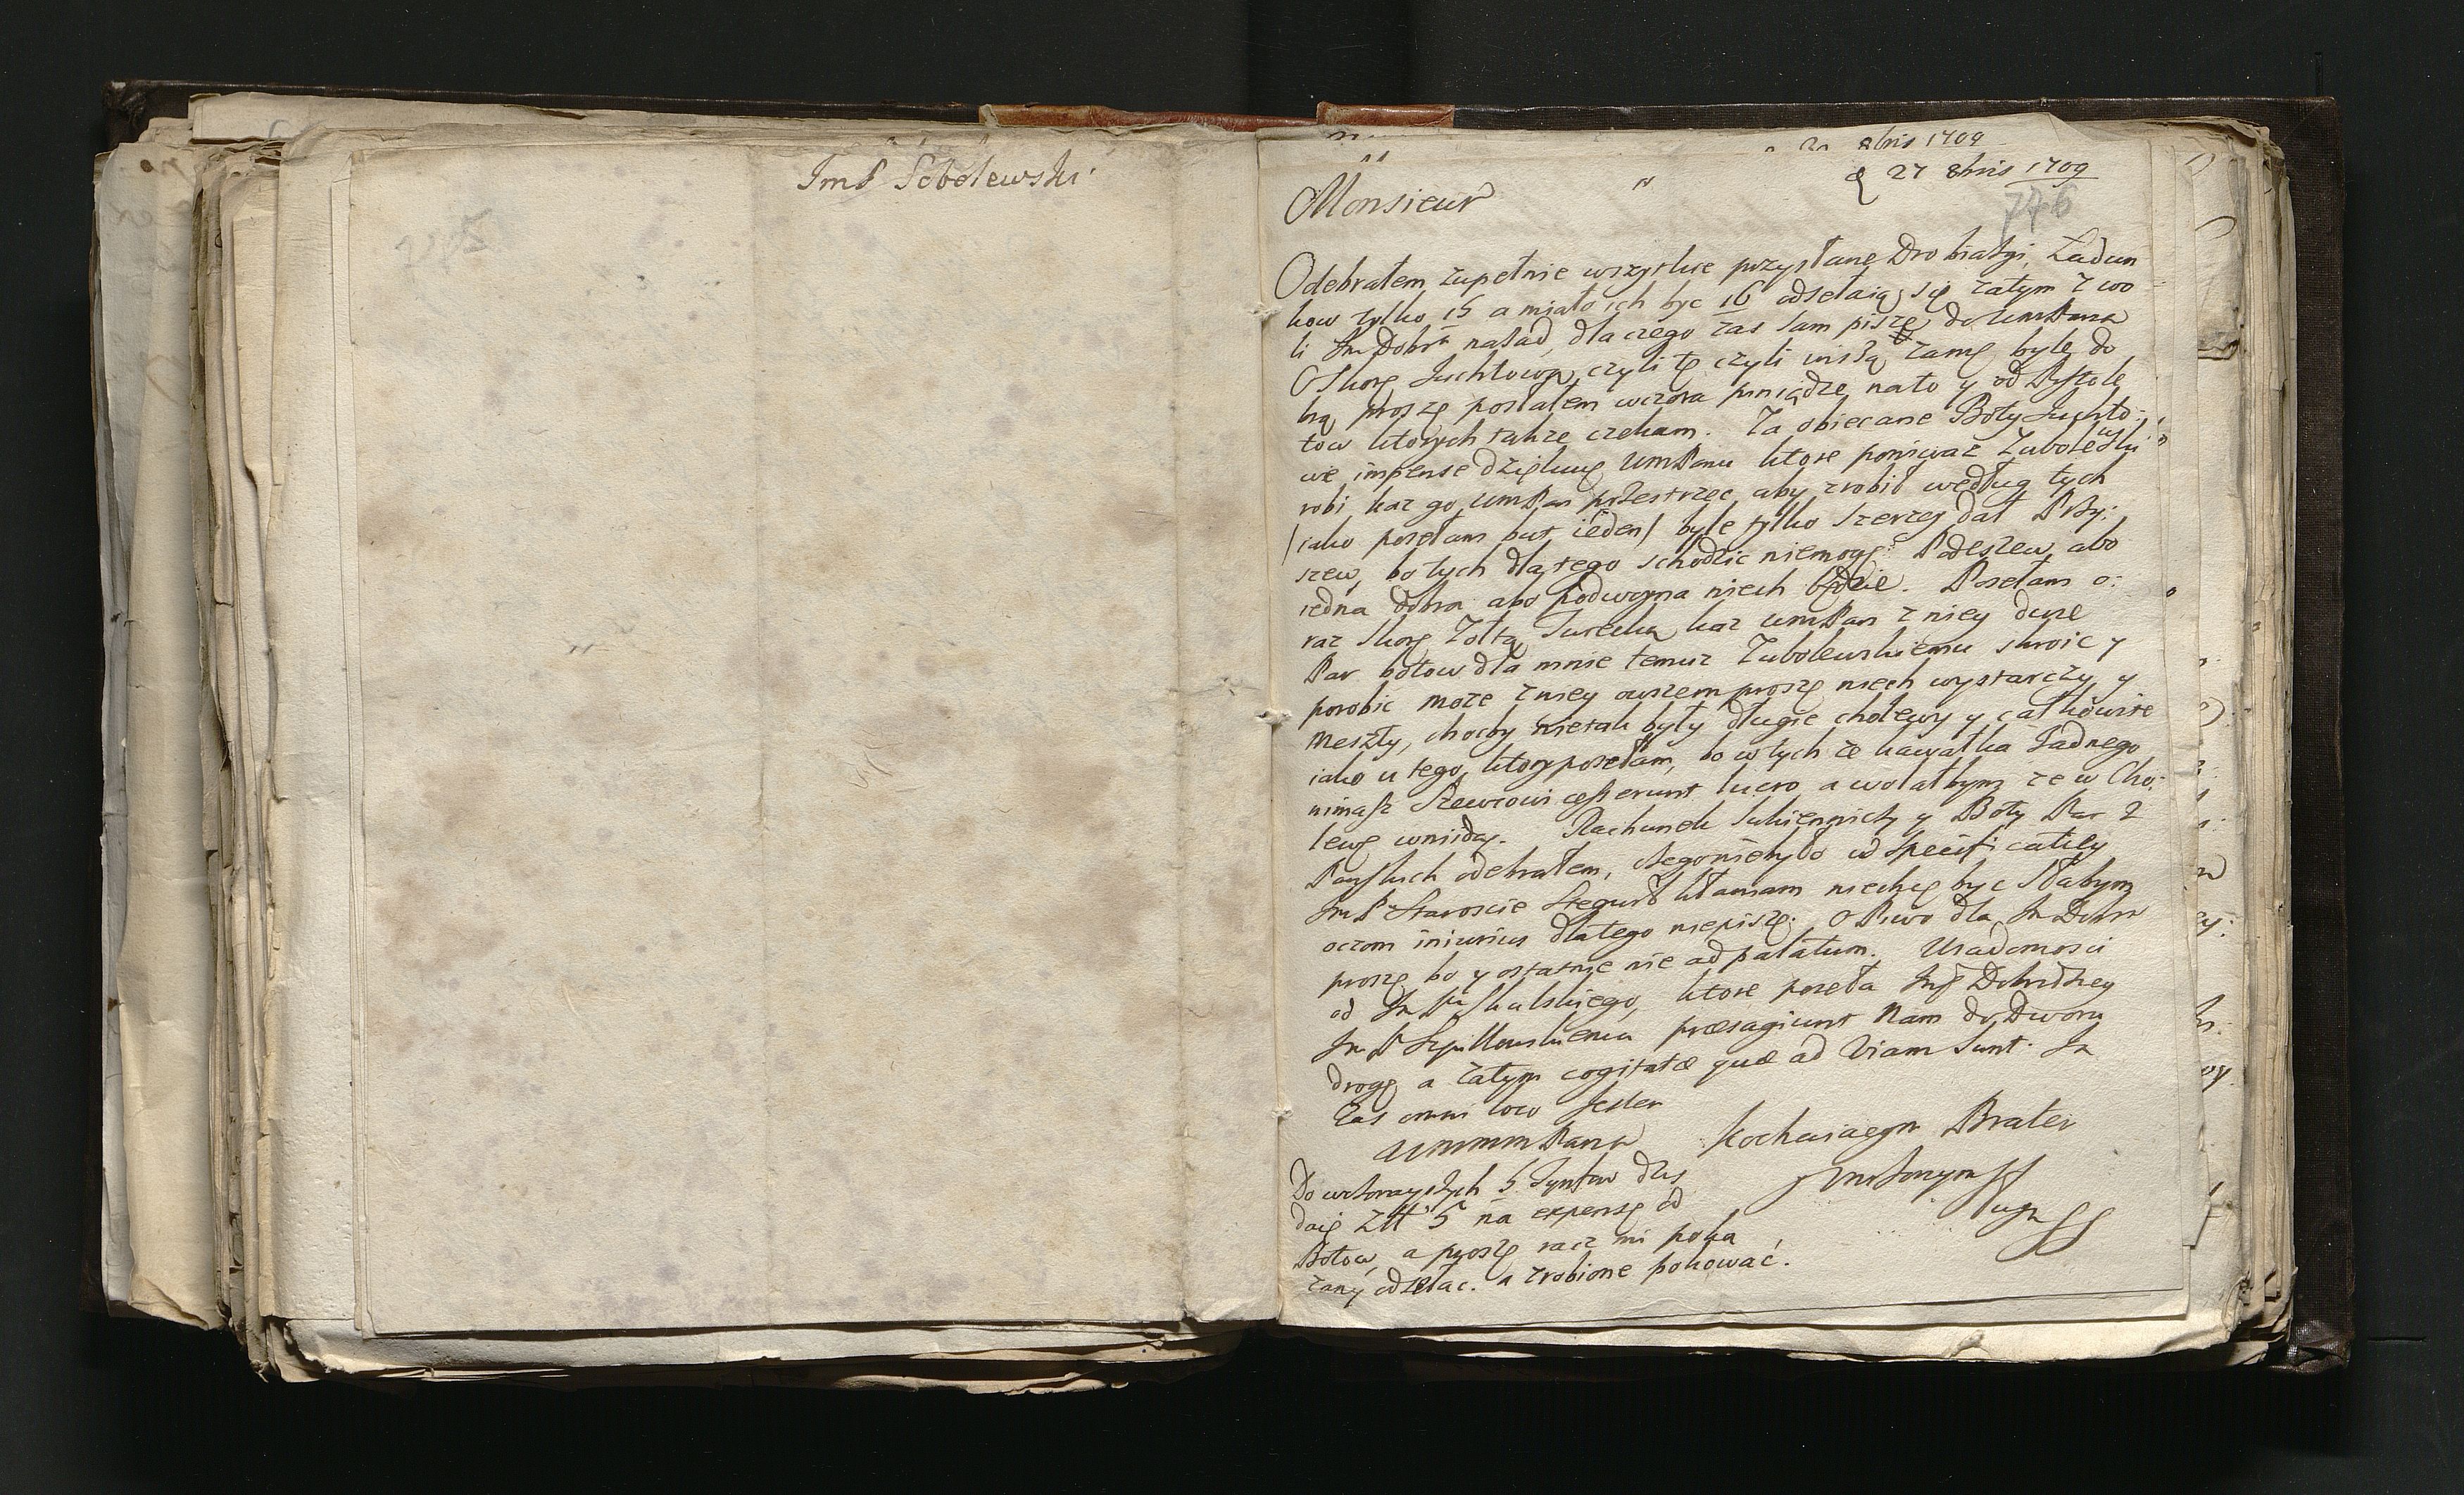 Jmś Sobolewski
8bris 1709
27 8bris 1709
776
Monsieur
Odebrałem zupełnie wszytkie przysłane Drobiazgi, Ładun
kow tylko 15 a miało ich byc 16 odsełaią się zatym z wo
li Jm Dobra nazad, dla czego zas sam piszę do UmPana
O Skorę Juchtową czyli tę czyli inszą samę byle do
brą proszę posłałem wczora pieniądze nato y od Pistole
tow ktorych także czekam. Za obiecane Boty Juchto:
we impense dziękuię UmPanu ktore poniewaz Zubolewski
robi kaz go UmPan przestrzec aby zrobił według tych
/iako posełam but ieden/ byle tylko szerzey dał Przy:
szew, bo tych dla tego schodzic niemogę. Podeszew abo
iedna dobra abo podwoyna niech będzie. Posełam o:
raz skorę żołtą Turecką kaz UmPan z niey dwie
Par botow dla mnie temuz Zubolewskiemu skroic y
porobic moze z niey owszem proszę niech wystarczy y
Meszty, chocby nietak były długie cholewy y całkowite
iako u tego ktory posełam, bo w tych ze kawałka żadnego
nimasz Szewcowi cesserunt lucro a wolałbym ze w Cho:
lewę wnidą. Rachunek Sukienniczy y Boty Par 2
Pańskich odebrałem, czego niebyło w specificatiey
Jm P Staroscie kłaniam niechcę byc Słabym
oczom iniurius dlatego niepiszę. O Piwo dla Jm Dobra
proszę bo y ostatnie nie ad palatum. Wiadomosci
od Jm P Skulskiego, ktore poseła Jmś Dobrdzey
Jm P praesagiunt nam do Dworu
drogę a zatym cogitate quae ad Viam sunt. Ja
zas omni loco Jestem
UmmmmPana Kochaiącym Bratem
y
Sługą
Do wczorayszych 5 Tynfow dus
daię Złł 5 na expensę od
Botow, a proszę racz mi poka
zany odesłac. a zrobione pokować.